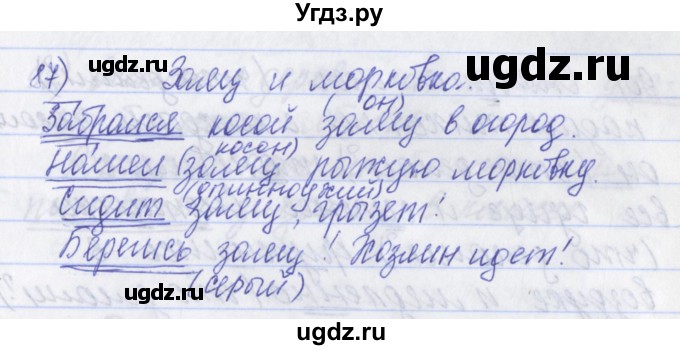 Угдз.ру
87) Заяц и морковка.
(он)
Забрался косой заяц в огород.
(косой)
Нашел заяц рыжую морковку.
(длинноухий)
Сидит заяц, грызет!
Берегись заяц! Хозяин идет!
(серый)
ugdz.ru
ugdz.ru
ugdz.ru
ugdz.ru
ugdz.ru
ugdz.ru
ugdz.ru